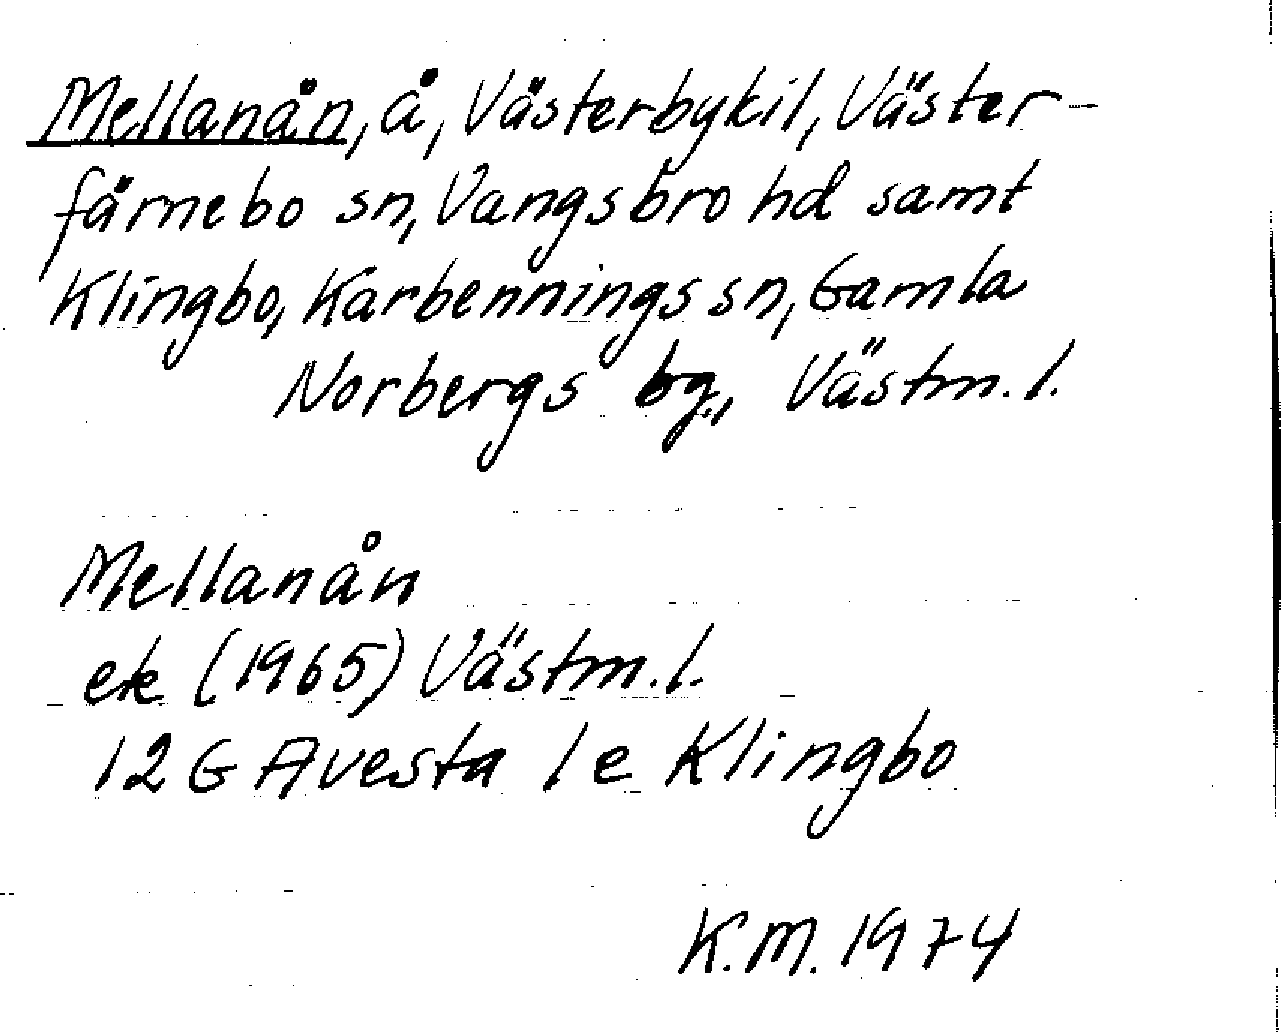 Mellanån, å, Västerbykil, Väster-
färnebo sn, Vangsbro hd samt
Klingbo, Karbennings sn, Gamla
Norbergs bg., Västm. l.
Mellanån
ek (1965) Västm. l.
12 G Avesta 1 e Klingbo
K.M. 1974